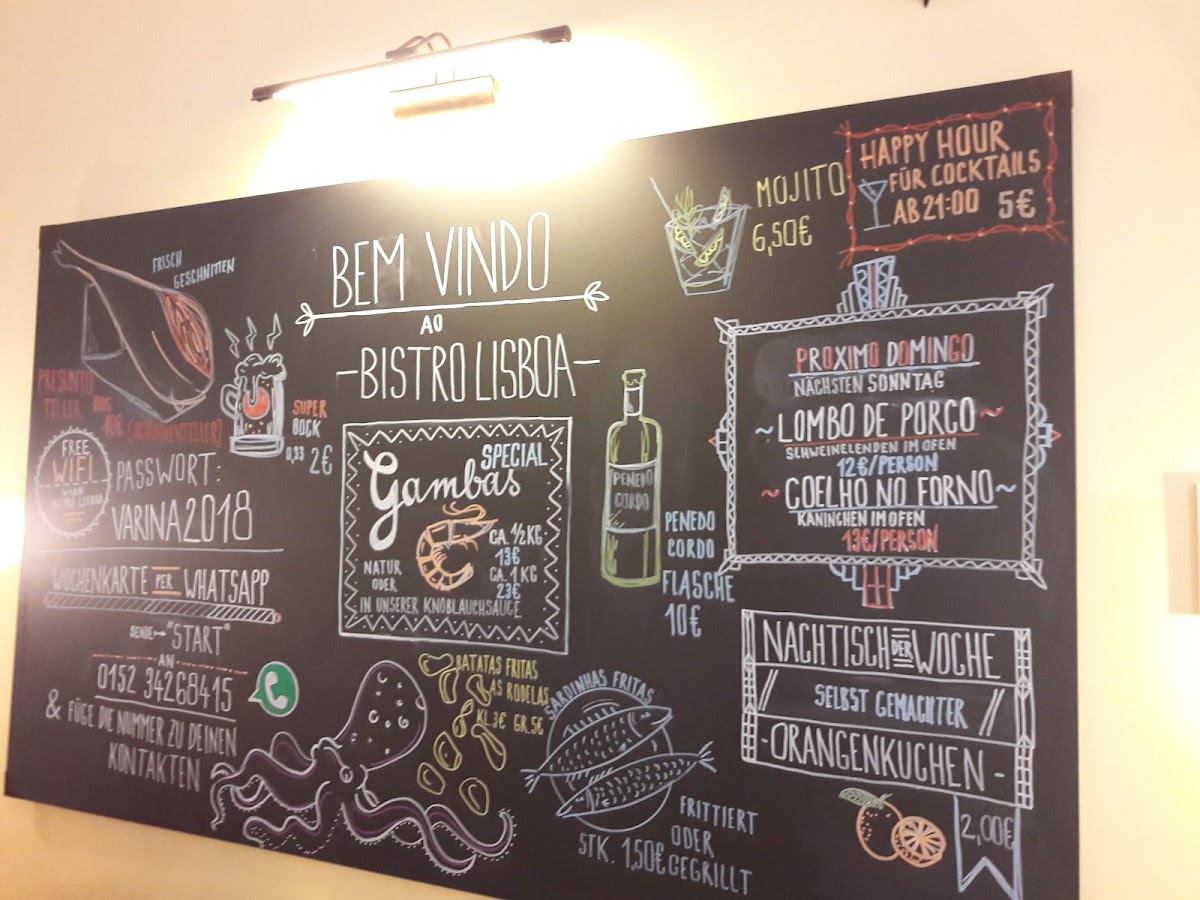 FRISCH
GESCHNITTEN
PRESUNTO
TELLER 100G
10€ (SCHINKENTELLER)
SUPER
BOCK
0,33 2€
FREE
WIFI
WLAN
BISTRO LISBOA
PASSWORT:
VARINA2018
WOCHENKARTE PER WHATSAPP
SENDE "START"
AN
0152 34268415
& FÜGE DIE NUMMER ZU DEINEN
KONTAKTEN
BEM VINDO
AO
-BISTRO LISBOA-
SPECIAL
Gambas
CA. ½ KG
13€
CA. 1 KG
23€
NATUR
ODER
IN UNSERER KNOBLAUCHSAUCE
BATATAS FRITAS
AS RODELAS
KL.3€ GR.5€
SARDINHAS FRITAS
FRITTIERT
ODER
GEGRILLT
STK. 1,50€
PENEDO
GORDO
PENEDO
CORDO
FLASCHE
10€
MOJITO
6,50€
HAPPY HOUR
FÜR COCKTAILS
AB 21:00 5€
PROXIMO DOMINGO
NÄCHSTEN SONNTAG
~LOMBO DE PORCO~
SCHWEINELENDEN IM OFEN
12€/PERSON
~COELHO NO FORNO~
KANINCHEN IM OFEN
13€/PERSON
NACHTISCH DER WOCHE
// SELBST GEMACHTER //
-ORANGENKUCHEN-
2,00€